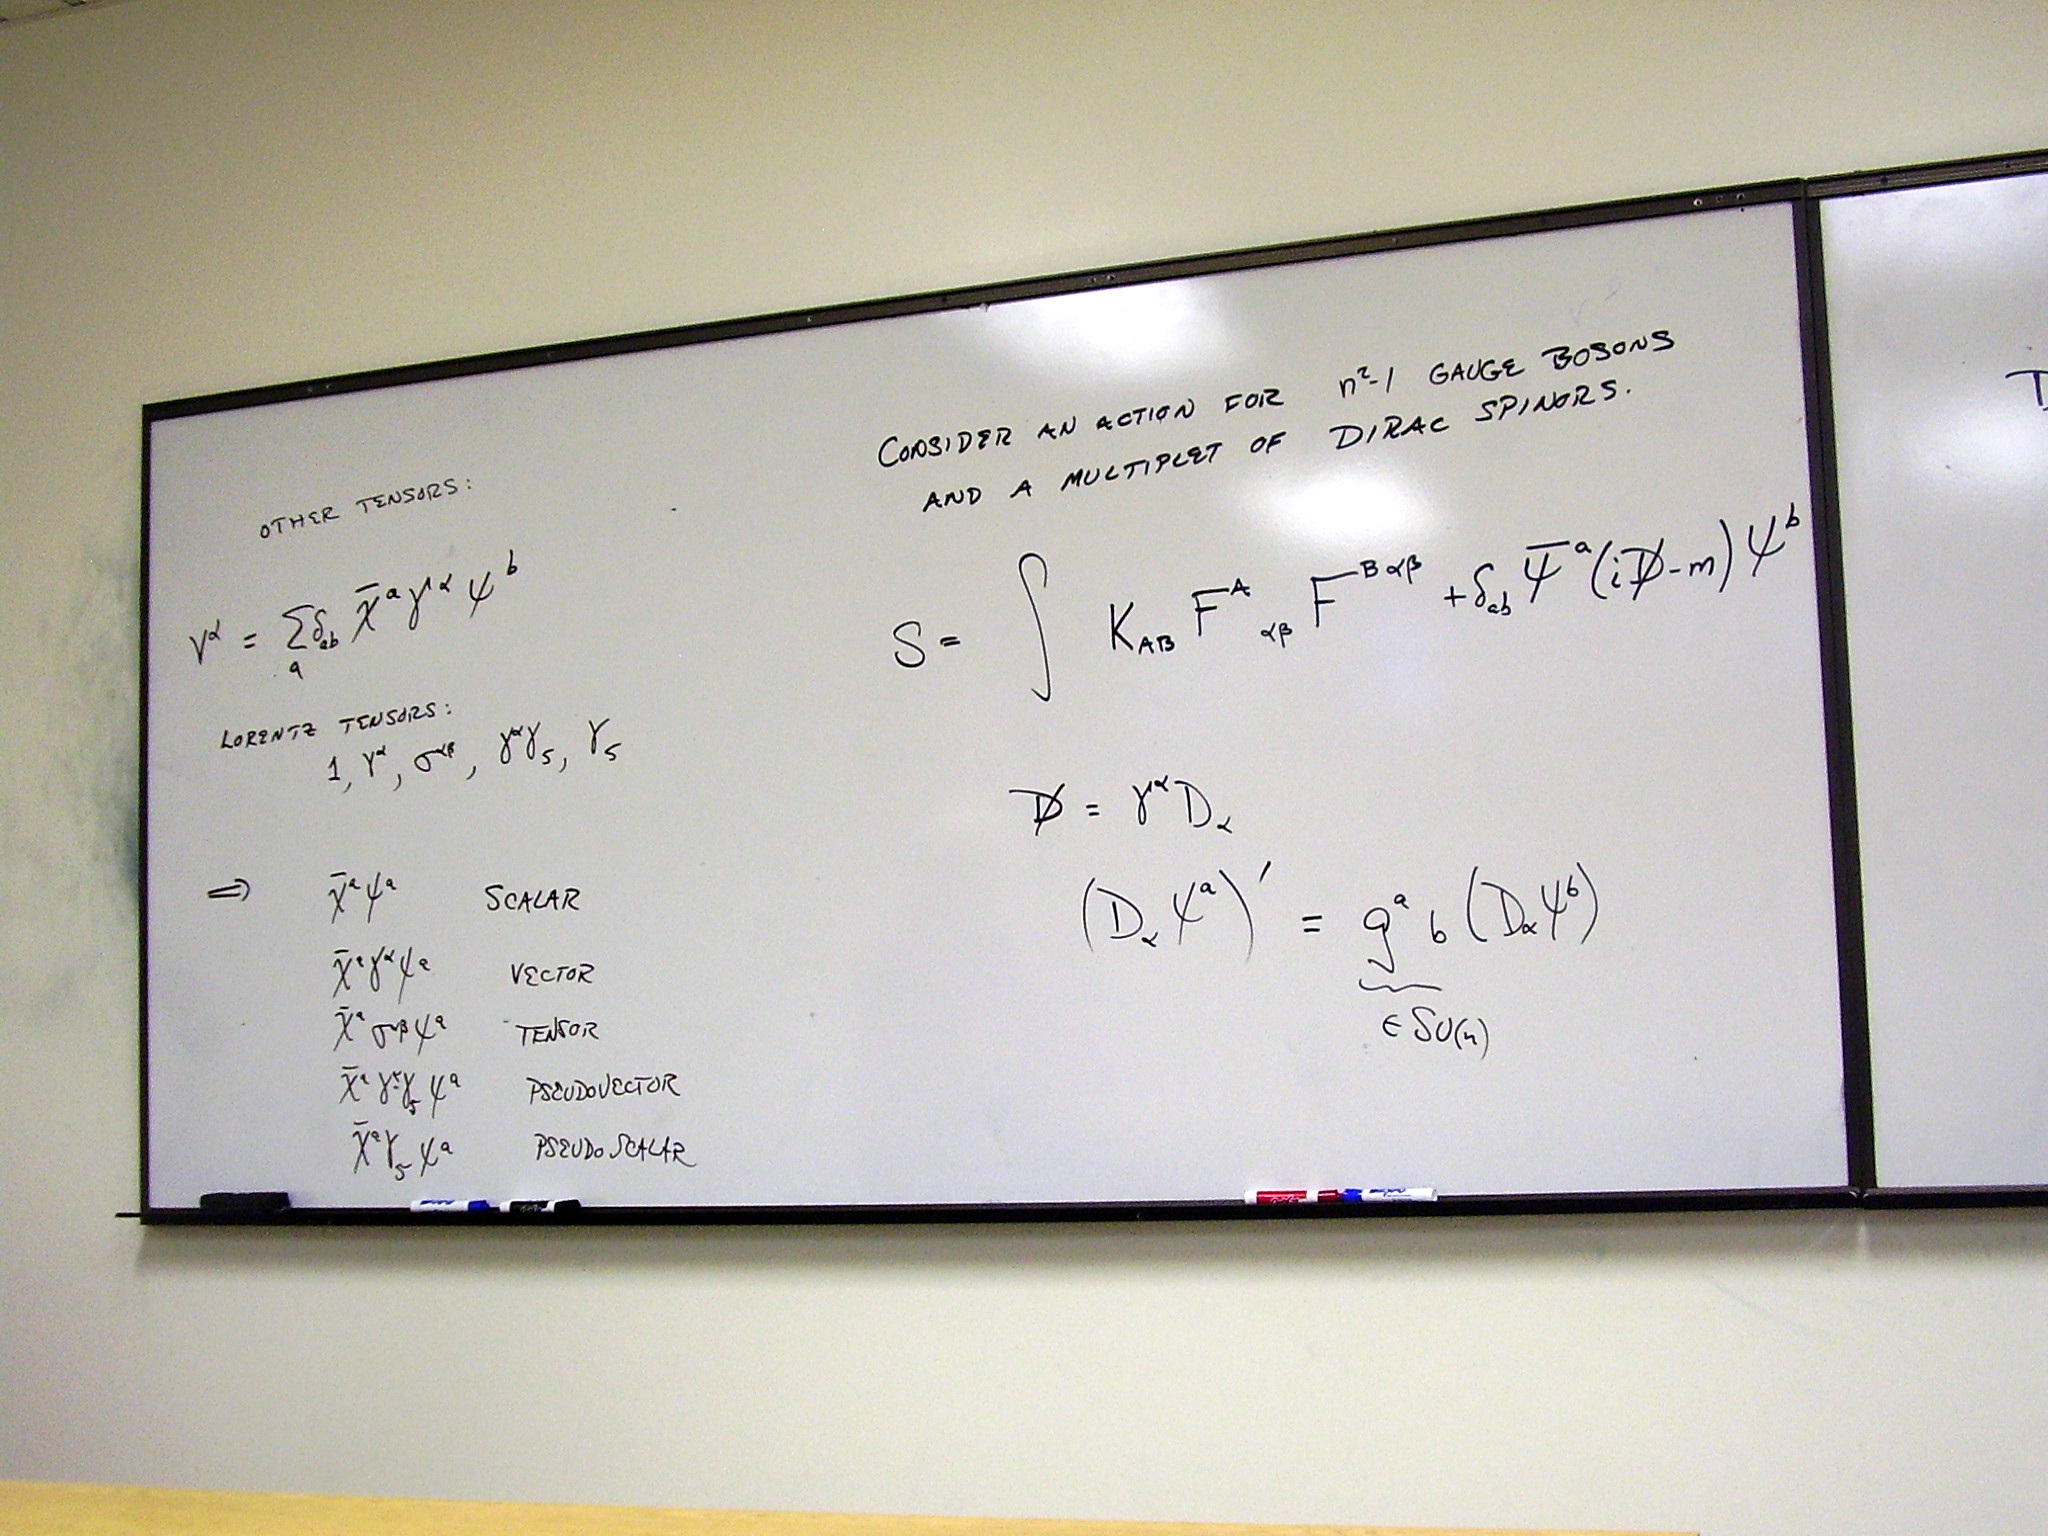 OTHER TENSORS:
V^α = Σ_a δ_ab χ̄^a γ^α ψ^b
LORENTZ TENSORS:
1, γ^α, σ^αβ, γ^α γ_5, γ_5
⇒ χ̄^a ψ^a SCALAR
χ̄^a γ^α ψ^a VECTOR
χ̄^a σ^αβ ψ^a TENSOR
χ̄^a γ^α γ_5 ψ^a PSEUDOVECTOR
χ̄^a γ_5 ψ^a PSEUDOSCALAR
CONSIDER AN ACTION FOR n²-1 GAUGE BOSONS
AND A MULTIPLET OF DIRAC SPINORS.
S = ∫ K_AB F^A_αβ F^Bαβ + δ_ab ψ̄^a (iD̸ - m) ψ^b
D̸ = γ^α D_α
(D_α ψ^a)' = g^a_b (D_α ψ^b)
∈ SU(n)